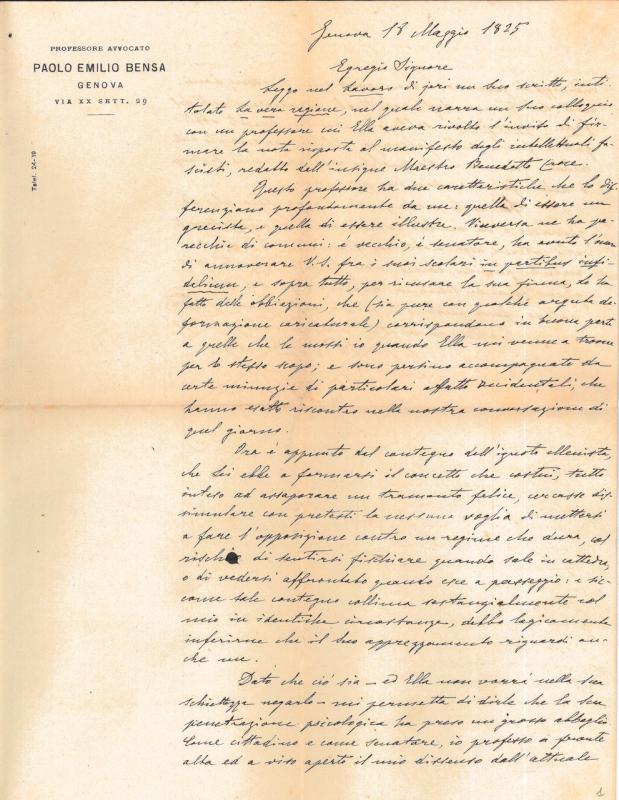 PROFESSORE AVVOCATO
PAOLO EMILIO BENSA
GENOVA
VIA XX SETT. 29
Telef. 24-19
Genova 18 Maggio 1925
Egregio Signore
Leggo nel Lavoro di jeri un Suo scritto, inti-
tolato La vera ragione, nel quale narra un Suo colloquio
con un professore cui Ella aveva rivolto l'invito di fir-
mare la nota risposta al manifesto degli intellettuali fa-
scisti, redatto dell'insigne Maestro Benedetto Croce.
Questo professore ha due caratteristiche che lo dif-
ferenziano profondamente da me: quella di essere un
grecista, e quella di essere illustre. Viceversa ne ha pa-
recchie di comuni: è vecchio, è senatore, ha avuto l'onore
di annoverare V.S. fra i suoi scolari in partibus infi-
delium, e sopra tutto, per ricusare la sua firma, Le ha
fatto delle obbiezioni, che (sia pure con qualche arguta de-
formazione caricaturale) corrispondono in buona parte
a quelle che Le mossi io quando Ella mi venne a trovare
per lo stesso scopo; e sono persino accompagnate da
certe minuzie di particolari affatto accidentali, che
hanno esatto riscontro nella nostra conversazione di
quel giorno.
Ora è appunto dal contegno dell'ignoto ellenista,
che Lei ebbe a formarsi il concetto che costui, tutto
inteso ad assaporare un tramonto felice, cercasse dis-
simulare con pretesti la nessuna voglia di mettersi
a fare l'opposizione contro un regime che dura, col
rischio di sentirsi fischiare quando sale in cattedra,
o di vedersi affrontato quando esce a passeggio: e sic-
come tale contegno collima sostanzialmente col
mio in identiche circostanze, debbo logicamente
inferirne che il Suo apprezzamento riguardi an-
che me.
Dato che ciò sia - ed Ella non vorrà nella sua
schiettezza negarlo - mi permetta di dirle che la sua
penetrazione psicologica ha preso un grosso abbaglio
Come cittadino e come senatore, io professo a fronte
alta ed a viso aperto il mio dissenso dall'attuale
1